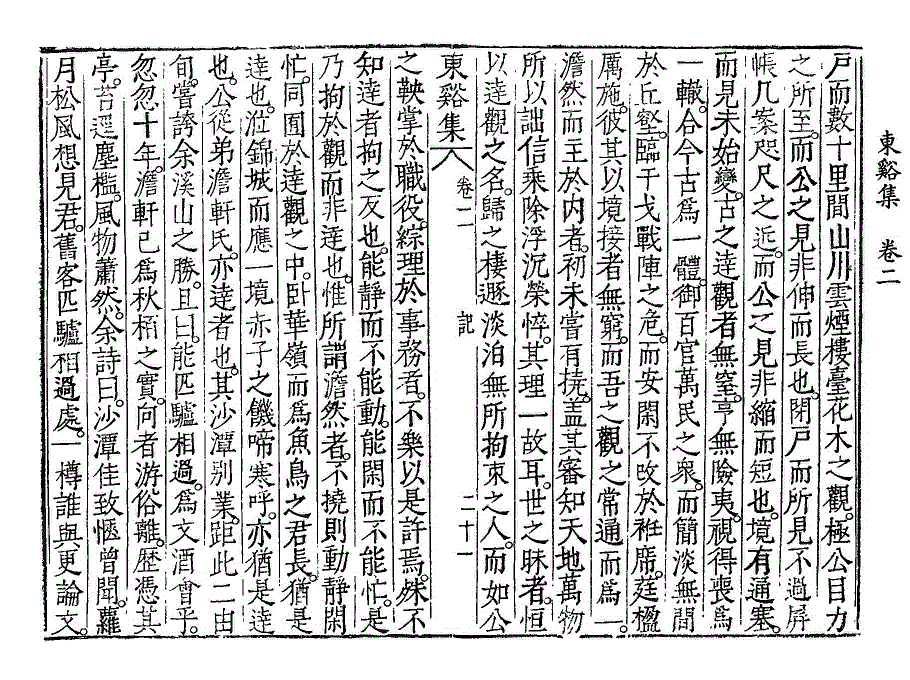 東谿集 卷二
戶而數十里間山川雲煙樓臺花木之觀。極公目力
之所至。而公之見非伸而長也。閉戶而所見不過屏
帳几案咫尺之近。而公之見非縮而短也。境有通塞。
而見未始變。古之達觀者無窒亨無險夷。視得喪爲
一轍。合今古爲一體。御百官萬民之衆。而簡淡無間
於丘壑。臨干戈戰陣之危。而安閑不改於袵席。莛楹
厲施。彼其以境接者無窮。而吾之觀之常通而爲一。
澹然而主於內者。初未嘗有撓。盖其審知天地萬物
所以詘信乘除浮沉榮悴。其理一故耳。世之昧者。恒
以達觀之名。歸之棲遯淡泊無所拘束之人。而如公
東谿集 卷二 記 二十一
之鞅掌於職役。綜理於事務者。不樂以是許焉。殊不
知達者拘之反也。能靜而不能動。能閑而不能忙。是
乃拘於觀而非達也。惟所謂澹然者。不撓則動靜閑
忙。同囿於達觀之中。臥華嶺而爲魚鳥之君長。猶是
達也。涖錦城而應一境赤子之饑啼寒呼。亦猶是達
也。公從弟澹軒氏。亦達者也。其沙潭別業。距此二由
旬。嘗誇余溪山之勝。且曰。能匹驢相過。爲文酒會乎。
忽忽十年。澹軒已爲秋栢之實。向者游俗離。歷憑其
亭。苔逕塵檻。風物蕭然。余詩曰。沙潭佳致愜曾聞。蘿
月松風想見君。舊客匹驢相過處。一樽誰與更論文。